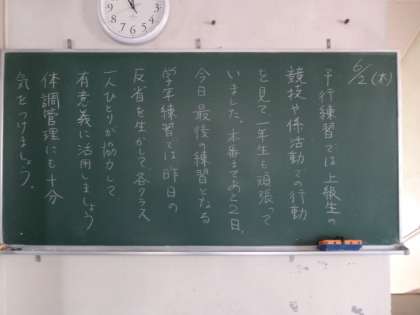 6/2(木)
予行練習では上級生の
競技や係活動での行動
を見て一年生も頑張って
いました。本番まであと2日、
今日最後の練習となる
学年練習では昨日の
反省を生かして各クラス
一人ひとりが協力して
有意義に活用しましょう
体調管理にも十分
気をつけましょう。